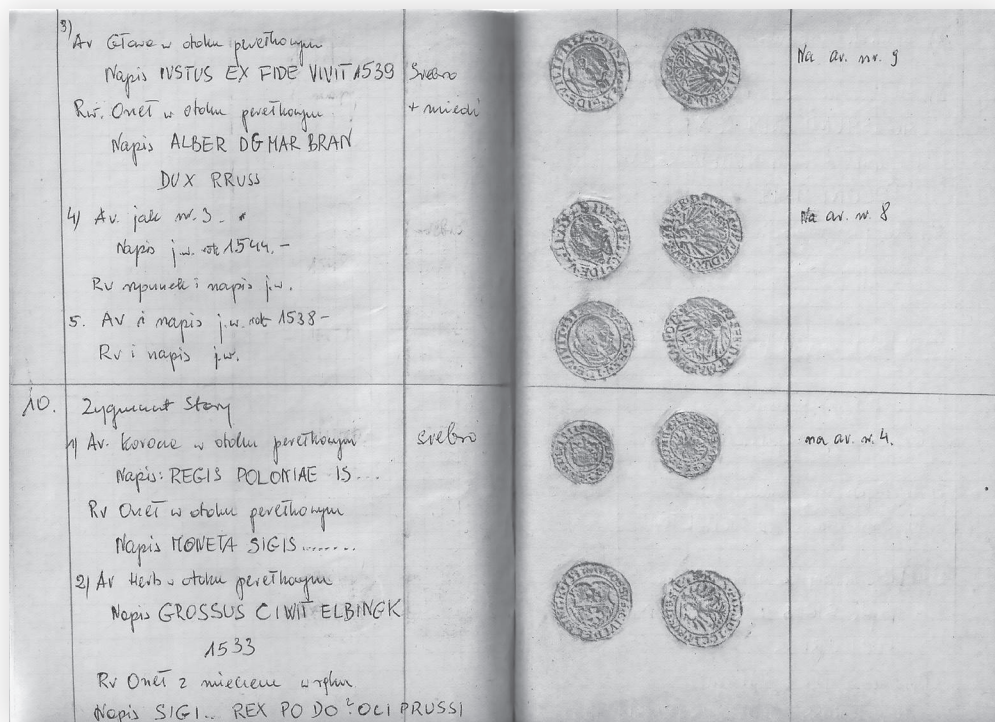 3)
Av Głowa w otoku perełkowym
Napis IUSTUS EX FIDE VIVIT 1539
Srebro
Na av. nr. 9
Rw. Orzeł w otoku perełkowym
+ miedź
Napis ALBER DG MAR BRAN
DUX RRUSS
4) Av. jak nr. 3.
Na av. nr. 8
Napis j.w. rok 1544.-
Rv rysunek i napis j.w.
5. Av i napis j.w. rok 1538-
Rv i napis j.w.
10. Zygmunt Stary
1) Av. Korona w otoku perełkowym
srebro
na av. nr. 4.
Napis: REGIS POLONIAE IS...
Rv Orzeł w otoku perełkowym
Napis MONETA SIGIS........
2) Av Herb w otoku perełkowym
Napis GROSSUS CIWIT ELBINGK
1533
Rv Orzeł z mieczem w ręku
Napis SIGI.. REX PO DO ? OCI PRUSSI